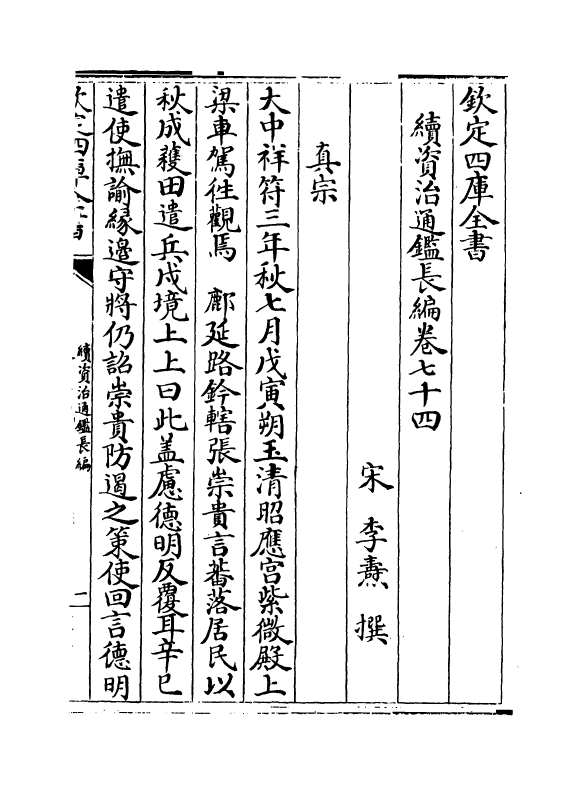 欽定四庫全書
續資治通鑑長編卷七十四
宋 李燾 撰
真宗
大中祥符三年秋七月戊寅朔玉清昭應宫紫微殿上
梁車駕徃觀焉 鄜延路鈐轄張崇貴言蕃落居民以
秋成穫田遣兵戍境上上曰此盖慮德明反覆耳辛巳
遣使撫諭緣邊守將仍詔崇貴防遏之策使回言德明
續資治通鑑長編